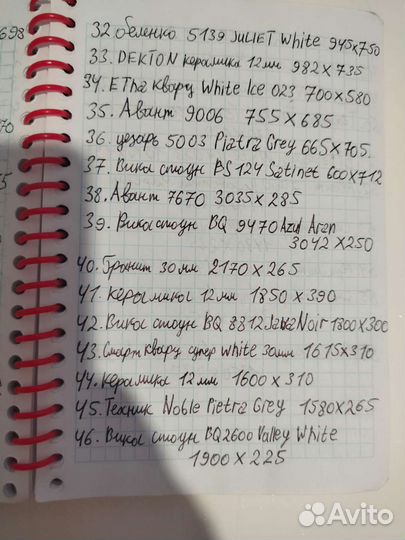 698
32. беленко 5139 JULIET White 945x750
33. DEKTON керамика 12 мм 982 x 735
34. ETha кварц White Ice 023 700x580
35. Авант 9006 755 x 685
36. цезарь 5003 Piatra Grey 665x705.
37. Вика стоун BS 124 Satinet 600x712
38. Авант 7670 3035 x 285
39. Вика стоун BQ 9470 Azul Aran
3042 x 250
40. Гранит 30 мм 2170 x 265
41. Керамика 12 мм 1850 x 390
42. Вика стоун BQ 8812 Java Noir 1800x300
43. Смарт кварц супер white 30мм 1615x310
44. Керамика 12 мм 1600 x 310
45. Техник Noble Pietra Grey 1580x265
46. Вика стоун BQ2600 Valley White
1900 x 225
Avito